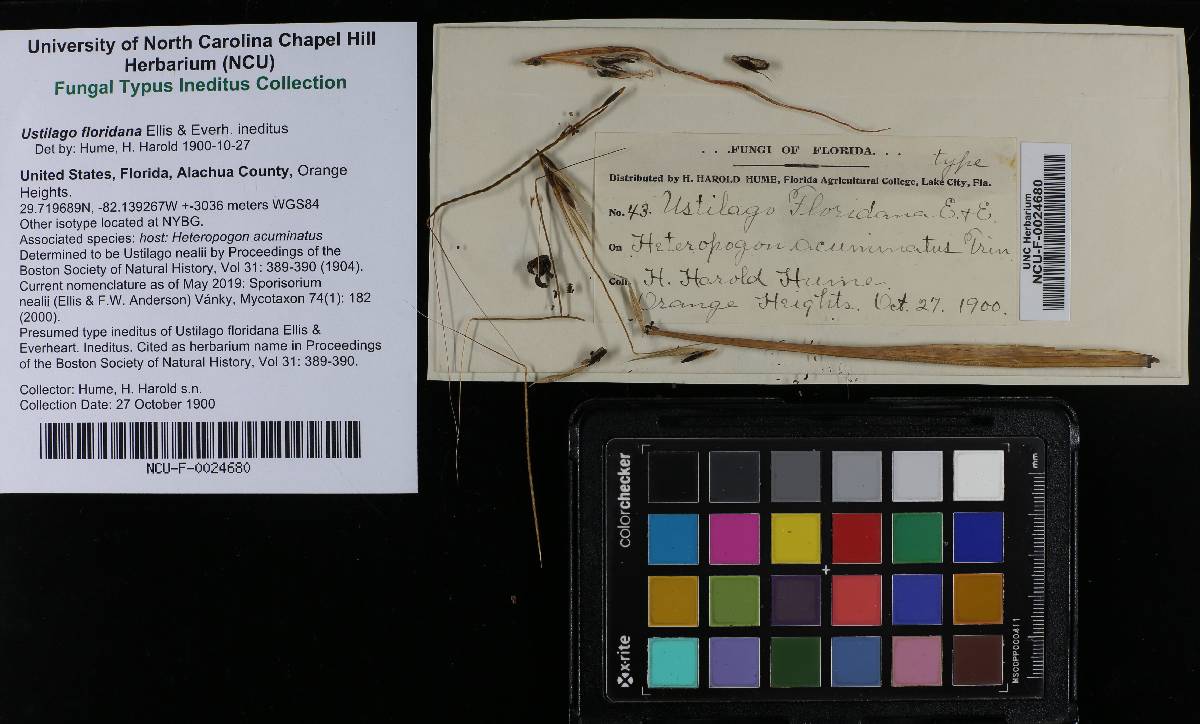 University of North Carolina Chapel Hill
Herbarium (NCU)
Fungal Typus Ineditus Collection
Ustilago floridana Ellis & Everh. ineditus
Det by: Hume, H. Harold 1900-10-27
United States, Florida, Alachua County, Orange
Heights.
29.719689N, -82.139267W +-3036 meters WGS84
Other isotype located at NYBG.
Associated species: host: Heteropogon acuminatus
Determined to be Ustilago nealii by Proceedings of the
Boston Society of Natural History, Vol 31: 389-390 (1904).
Current nomenclature as of May 2019: Sporisorium
nealii (Ellis & F.W. Anderson) Vánky, Mycotaxon 74(1): 182
(2000).
Presumed type ineditus of Ustilago floridana Ellis &
Everheart. Ineditus. Cited as herbarium name in Proceedings
of the Boston Society of Natural History, Vol 31: 389-390.
Collector: Hume, H. Harold s.n.
Collection Date: 27 October 1900
NCU-F-0024680
. . .FUNGI OF FLORIDA. . .
type
Distributed by H. HAROLD HUME, Florida Agricultural College, Lake City, Fla.
No. 43. Ustilago Floridana E. & E.
On Heteropogon acuminatus Trin
Coll. H. Harold Hume.
Orange Heights. Oct. 27. 1900.
UNC Herbarium
NCU-F-0024680
colorchecker
x-rite
mm
MSCCPPCC0411